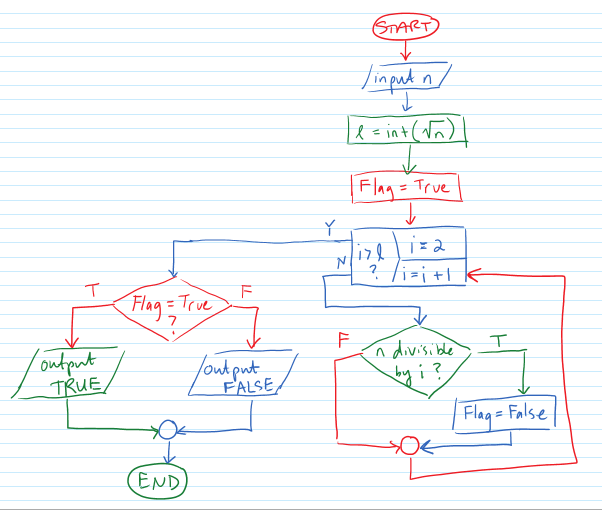 START
input n
l = int(√n)
Flag = True
Y
i>l
?
i = 2
i = i + 1
N
T
Flag = True
?
F
output
TRUE
output
FALSE
F
n divisible
by i ?
T
Flag = False
END